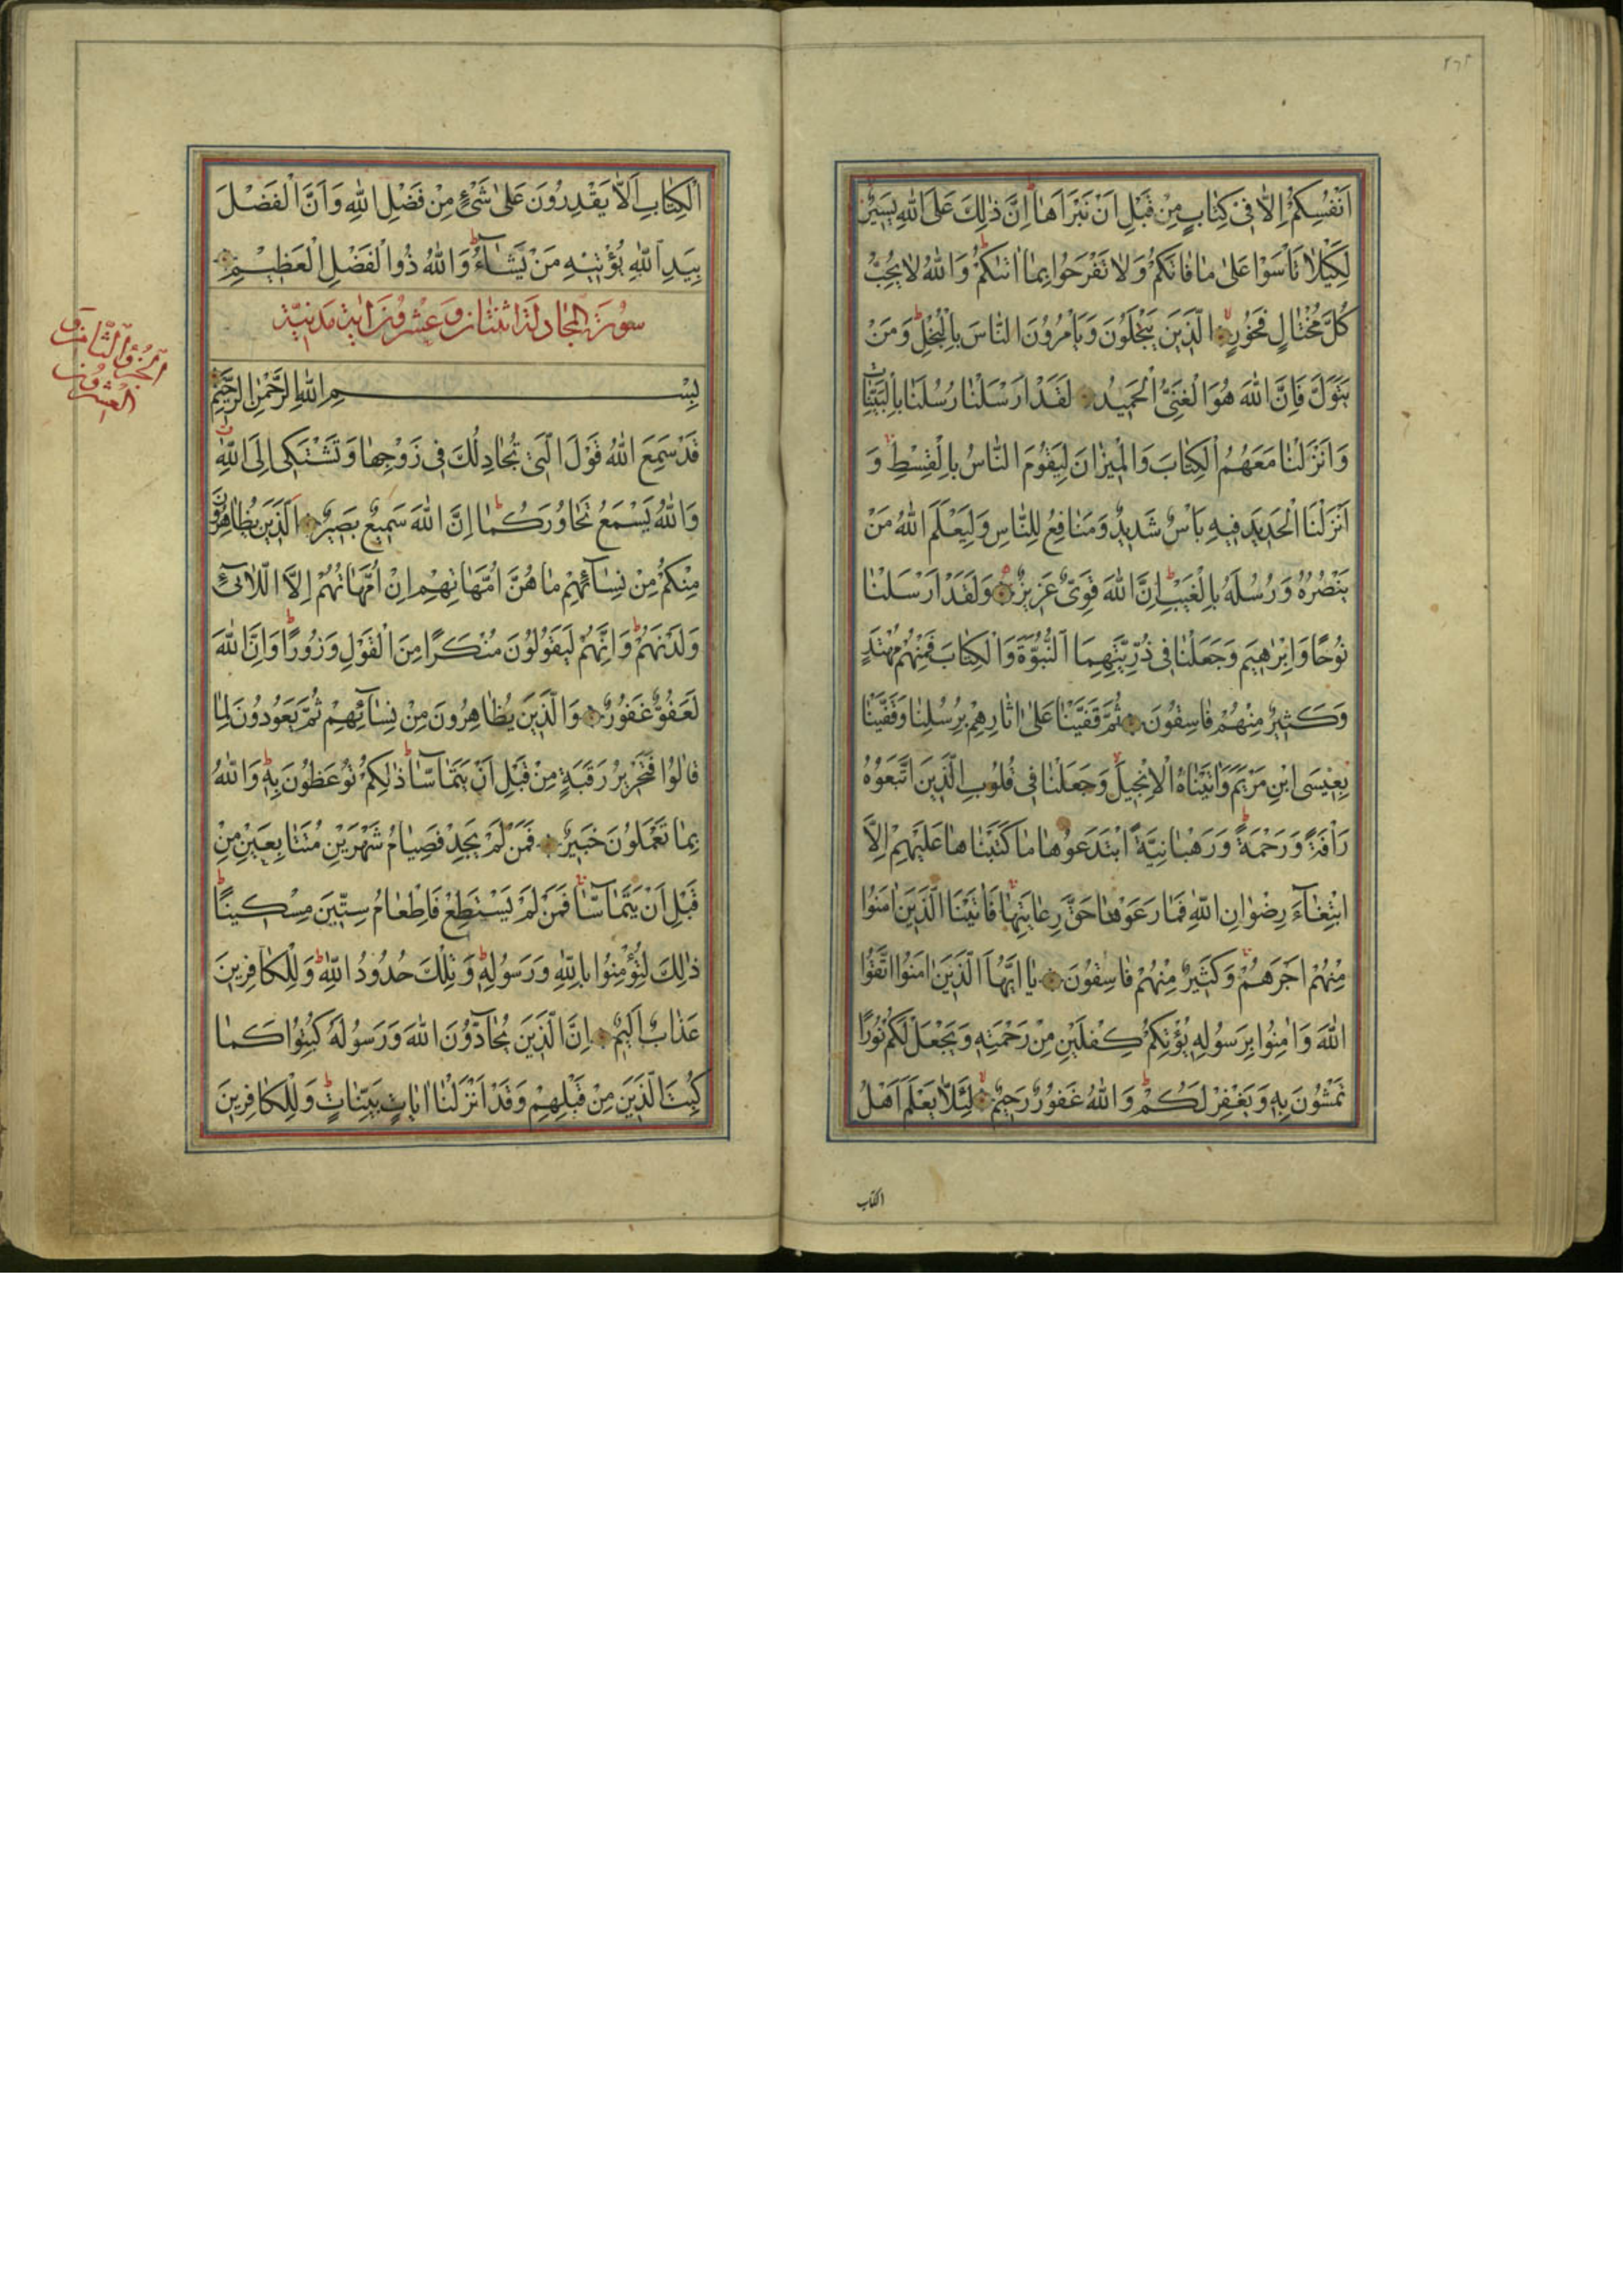 ٢٦٢
اَنْفُسِكُمْ اِلاّٰ فى كِتٰابٍ مِنْ قَبْلِ اَنْ نَبْرَاَهٰا اِنَّ ذٰلِكَ عَلَى اللهِ يَسيرٌ
لِكَيْلاٰ تَاْسَوْا عَلىٰ مٰا فٰاتَكُمْ وَلاٰ تَفْرَحُوا بِمٰا اٰتٰيكُمْ وَاللهُ لاٰ يُحِبُّ
كُلَّ مُخْتٰالٍ فَخُورٍ الَّذينَ يَبْخَلُونَ وَيَاْمُرُونَ النّٰاسَ بِالْبُخْلِ وَمَنْ
يَتَوَلَّ فَاِنَّ اللهَ هُوَ الْغَنِىُّ الْحَميدُ لَقَدْ اَرْسَلْنٰا رُسُلَنٰا بِالْبَيِّنٰاتِ
وَاَنْزَلْنٰا مَعَهُمُ الْكِتٰابَ وَالْميزٰانَ لِيَقُومَ النّٰاسُ بِالْقِسْطِ وَ
اَنْزَلْنَا الْحَديدَ فيهِ بَاْسٌ شَديدٌ وَمَنٰافِعُ لِلنّٰاسِ وَلِيَعْلَمَ اللهُ مَنْ
يَنْصُرُهُ وَرُسُلَهُ بِالْغَيْبِ اِنَّ اللهَ قَوِىٌّ عَزيزٌ وَلَقَدْ اَرْسَلْنٰا
نُوحًا وَاِبْرٰاهيمَ وَجَعَلْنٰا فى ذُرِّيَّتِهِمَا النُّبُوَّةَ وَالْكِتٰابَ فَمِنْهُمْ مُهْتَدٍ
وَكَثيرٌ مِنْهُمْ فٰاسِقُونَ ثُمَّ قَفَّيْنٰا عَلىٰ اٰثٰارِهِمْ بِرُسُلِنٰا وَقَفَّيْنٰا
بِعيسَى ابْنِ مَرْيَمَ وَاٰتَيْنٰاهُ الْاِنْجيلَ وَجَعَلْنٰا فى قُلُوبِ الَّذينَ اتَّبَعُوهُ
رَاْفَةً وَرَحْمَةً وَرَهْبٰانِيَّةً ابْتَدَعُوهٰا مٰا كَتَبْنٰاهٰا عَلَيْهِمْ اِلاَّ
ابْتِغٰآءَ رِضْوٰانِ اللهِ فَمٰا رَعَوْهٰا حَقَّ رِعٰايَتِهٰا فَاٰتَيْنَا الَّذينَ اٰمَنُوا
مِنْهُمْ اَجْرَهُمْ وَكَثيرٌ مِنْهُمْ فٰاسِقُونَ يٰا اَيُّهَا الَّذينَ اٰمَنُوا اتَّقُوا
اللهَ وَاٰمِنُوا بِرَسُولِهِ يُؤْتِكُمْ كِفْلَيْنِ مِنْ رَحْمَتِهِ وَيَجْعَلْ لَكُمْ نُورًا
تَمْشُونَ بِهِ وَيَغْفِرْ لَكُمْ وَاللهُ غَفُورٌ رَحيمٌ لِئَلاّٰ يَعْلَمَ اَهْلُ
الكتاب
الْكِتٰابِ اَلاّٰ يَقْدِرُونَ عَلىٰ شَىْءٍ مِنْ فَضْلِ اللهِ وَاَنَّ الْفَضْلَ
بِيَدِ اللهِ يُؤْتيهِ مَنْ يَشٰآءُ وَاللهُ ذُوا الْفَضْلِ الْعَظيمِ
سُورَةُ الْمُجٰادِلَة اثْنَتٰانِ وَعِشْرُونَ اٰيَة مَدَنِيَّة
بِسْمِ اللهِ الرَّحْمٰنِ الرَّحيمِ
الجزو الثامن و
العشرون
قَدْ سَمِعَ اللهُ قَوْلَ الَّتى تُجٰادِلُكَ فى زَوْجِهٰا وَتَشْتَكى اِلَى اللهِ
وَاللهُ يَسْمَعُ تَحٰاوُرَكُمٰا اِنَّ اللهَ سَميعٌ بَصيرٌ اَلَّذينَ يُظٰاهِرُونَ
مِنْكُمْ مِنْ نِسٰآئِهِمْ مٰا هُنَّ اُمَّهٰاتِهِمْ اِنْ اُمَّهٰاتُهُمْ اِلاَّ اللّٰائى
وَلَدْنَهُمْ وَاِنَّهُمْ لَيَقُولُونَ مُنْكَرًا مِنَ الْقَوْلِ وَزُورًا وَاِنَّ اللهَ
لَعَفُوٌّ غَفُورٌ وَالَّذينَ يُظٰاهِرُونَ مِنْ نِسٰآئِهِمْ ثُمَّ يَعُودُونَ لِمٰا
قٰالُوا فَتَحْريرُ رَقَبَةٍ مِنْ قَبْلِ اَنْ يَتَمٰآسّٰا ذٰلِكُمْ تُوعَظُونَ بِهِ وَاللهُ
بِمٰا تَعْمَلُونَ خَبيرٌ فَمَنْ لَمْ يَجِدْ فَصِيٰامُ شَهْرَيْنِ مُتَتٰابِعَيْنِ مِنْ
قَبْلِ اَنْ يَتَمٰآسّٰا فَمَنْ لَمْ يَسْتَطِعْ فَاِطْعٰامُ سِتّينَ مِسْكينًا
ذٰلِكَ لِتُؤْمِنُوا بِاللهِ وَرَسُولِهِ وَتِلْكَ حُدُودُ اللهِ وَلِلْكٰافِرينَ
عَذٰابٌ اَليمٌ اِنَّ الَّذينَ يُحٰآدُّونَ اللهَ وَرَسُولَهُ كُبِتُوا كَمٰا
كُبِتَ الَّذينَ مِنْ قَبْلِهِمْ وَقَدْ اَنْزَلْنٰا اٰيٰاتٍ بَيِّنٰاتٍ وَلِلْكٰافِرينَ